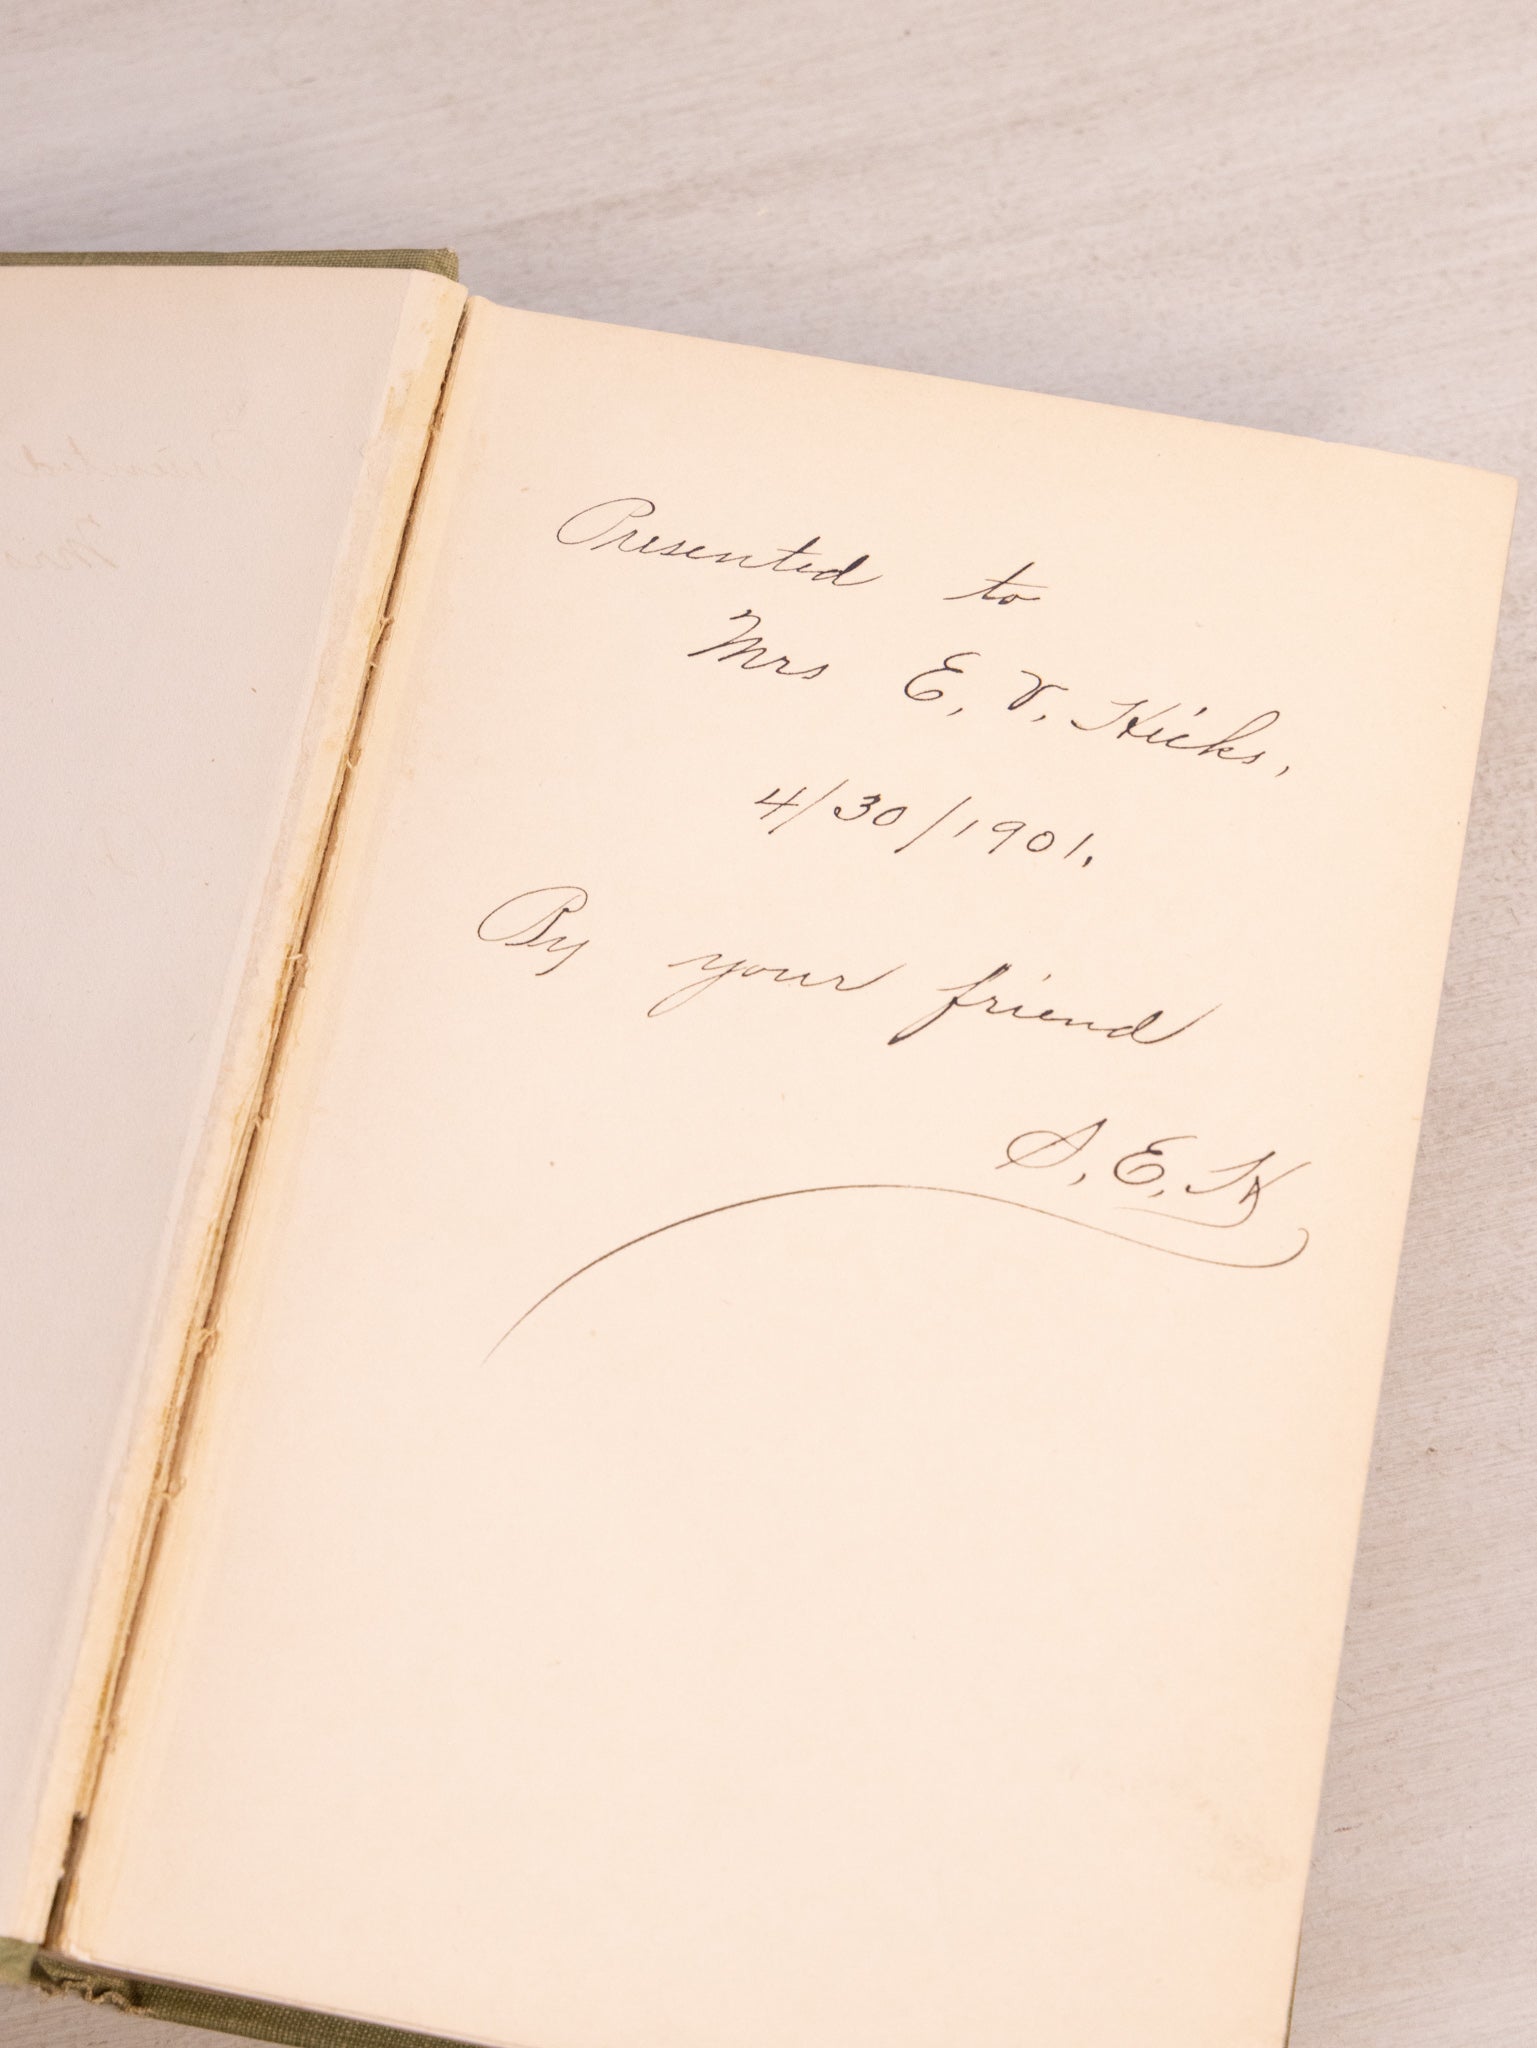 Presented to
Mrs E. V. Hicks,
4/30/1901.
By your friend
S. E. H